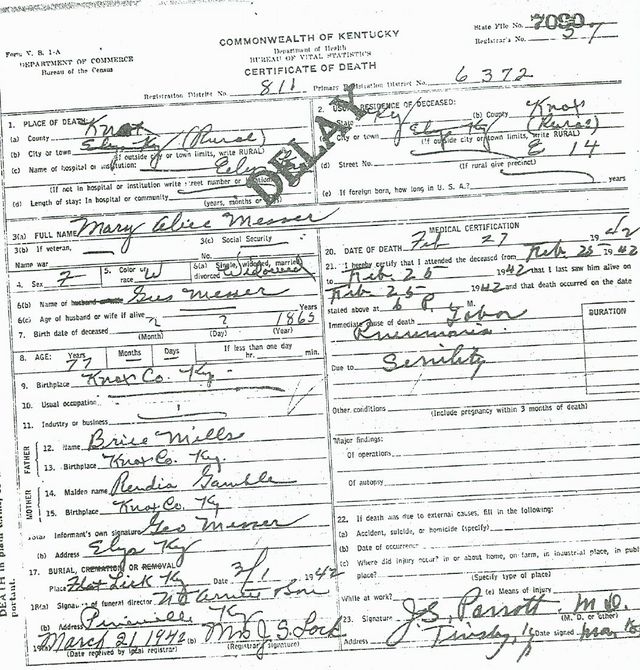 COMMONWEALTH OF KENTUCKY
State File No. 7090
Form V. S. 1-A
Department of Health
Registrar's No. 57
DEPARTMENT OF COMMERCE
BUREAU OF VITAL STATISTICS
Bureau of the Census
CERTIFICATE OF DEATH
Registration District No. 811 Primary Registration District No. 6372
DELAY
1. PLACE OF DEATH
(a) County Knox
(b) City or town Elys Ky (Rural)
(If outside city or town limits, write RURAL)
(c) Name of hospital or institution:
(If not in hospital or institution write street number or location)
(d) Length of stay: In hospital or community
(years, months or
2. USUAL RESIDENCE OF DECEASED:
State Ky (b) County Knox
City or town Elys Ky (Rural)
(If outside city or town limits, write RURAL)
(d) Street No. E 14
(If rural give precinct)
(e) If foreign born, how long in U. S. A.? years
3(a) FULL NAME Mary Alice Messer
3(b) If veteran,
Name war
3(c) Social Security
No.
4. Sex F 5. Color or race W 6(a) Single, widowed, married, divorced Widowed
6(b) Name of husband Gus Messer
6(c) Age of husband or wife if alive Years
7. Birth date of deceased ? ? 1865
(Month) (Day) (Year)
8. AGE: Years Months Days If less than one day
77 hr. min.
9. Birthplace Knox Co. Ky
10. Usual occupation
11. Industry or business
FATHER
12. Name Brice Mills
13. Birthplace Knox Co. Ky.
MOTHER
14. Maiden name Gamble
15. Birthplace Knox Co. Ky
Informant's own signature Geo Messer
(b) Address Elys Ky
17. BURIAL, CREMATION OR REMOVAL
Place Flat Lick Ky Date 3/1 1942
18(a) Signature of funeral director
(b) Address Pineville Ky
19(a) March 21 1942 (b) Mrs J. S. Lock
(Date received by local registrar) (Registrar's signature)
MEDICAL CERTIFICATION
20. DATE OF DEATH Feb 27 1942
21. I hereby certify that I attended the deceased from Feb 25 1942
to Feb 25 1942 that I last saw him alive on
Feb 25 1942 and that death occurred on the date
stated above at 6 P. M.
DURATION
Immediate cause of death Lobar
Pneumonia
Due to Senility
Other conditions
(Include pregnancy within 3 months of death)
Major findings:
Of operations
Of autopsy
22. If death was due to external causes, fill in the following:
(a) Accident, suicide, or homicide (specify)
(b) Date of occurrence
(c) Where did injury occur? In or about home, on farm, in industrial place, in pub
place?
(Specify type of place)
While at work? (e) Means of injury
23. Signature J. S. Parrott M. D.
(M. D. or other)
Address Tinsley Ky Date signed Mar
DEATH in plain
portant.